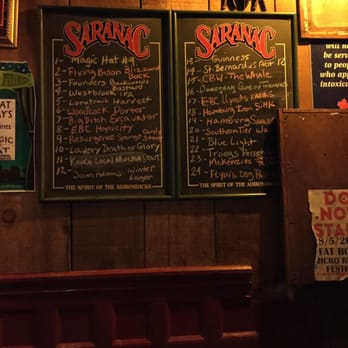 SARANAC
1- Magic Hat #9
2- Flying Bison Blizzard Bock
3- Founders Backwoods Bastard
4- Westbrook IPA
5- Longtrail Harvest
6- Woodcock Porter
7- Big Ditch Excavator
8- EBC Hopicity
9- Resurgence Sponge Candy Stout
10- Lavery Death or Glory
11- Keuka Local Mocha Stout
12- Sam Adams Winter Lager
THE SPIRIT OF THE ADIRONDACKS
SARANAC
13- Guinness
14- St. Bernardus ABT 12
15- CBW - The Whale
16-
17- EBC
18-
19- Hamburg
20- Southern Tier
21- Blue Light
22- Troegs
23- McKenzies
24- Flying Dog
THE SPIRIT OF THE
AT
Y'S
will n
be serv
to peop
who ap
intoxica
DO
NOT
STAR
8/5/2
FAT BO
MICRO
FESTI